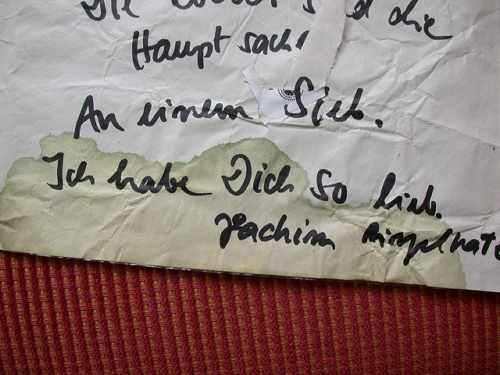 Die Löcher sind die
Hauptsach
An einem Sieb.
Ich habe Dich so lieb.
Joachim Ringelnatz